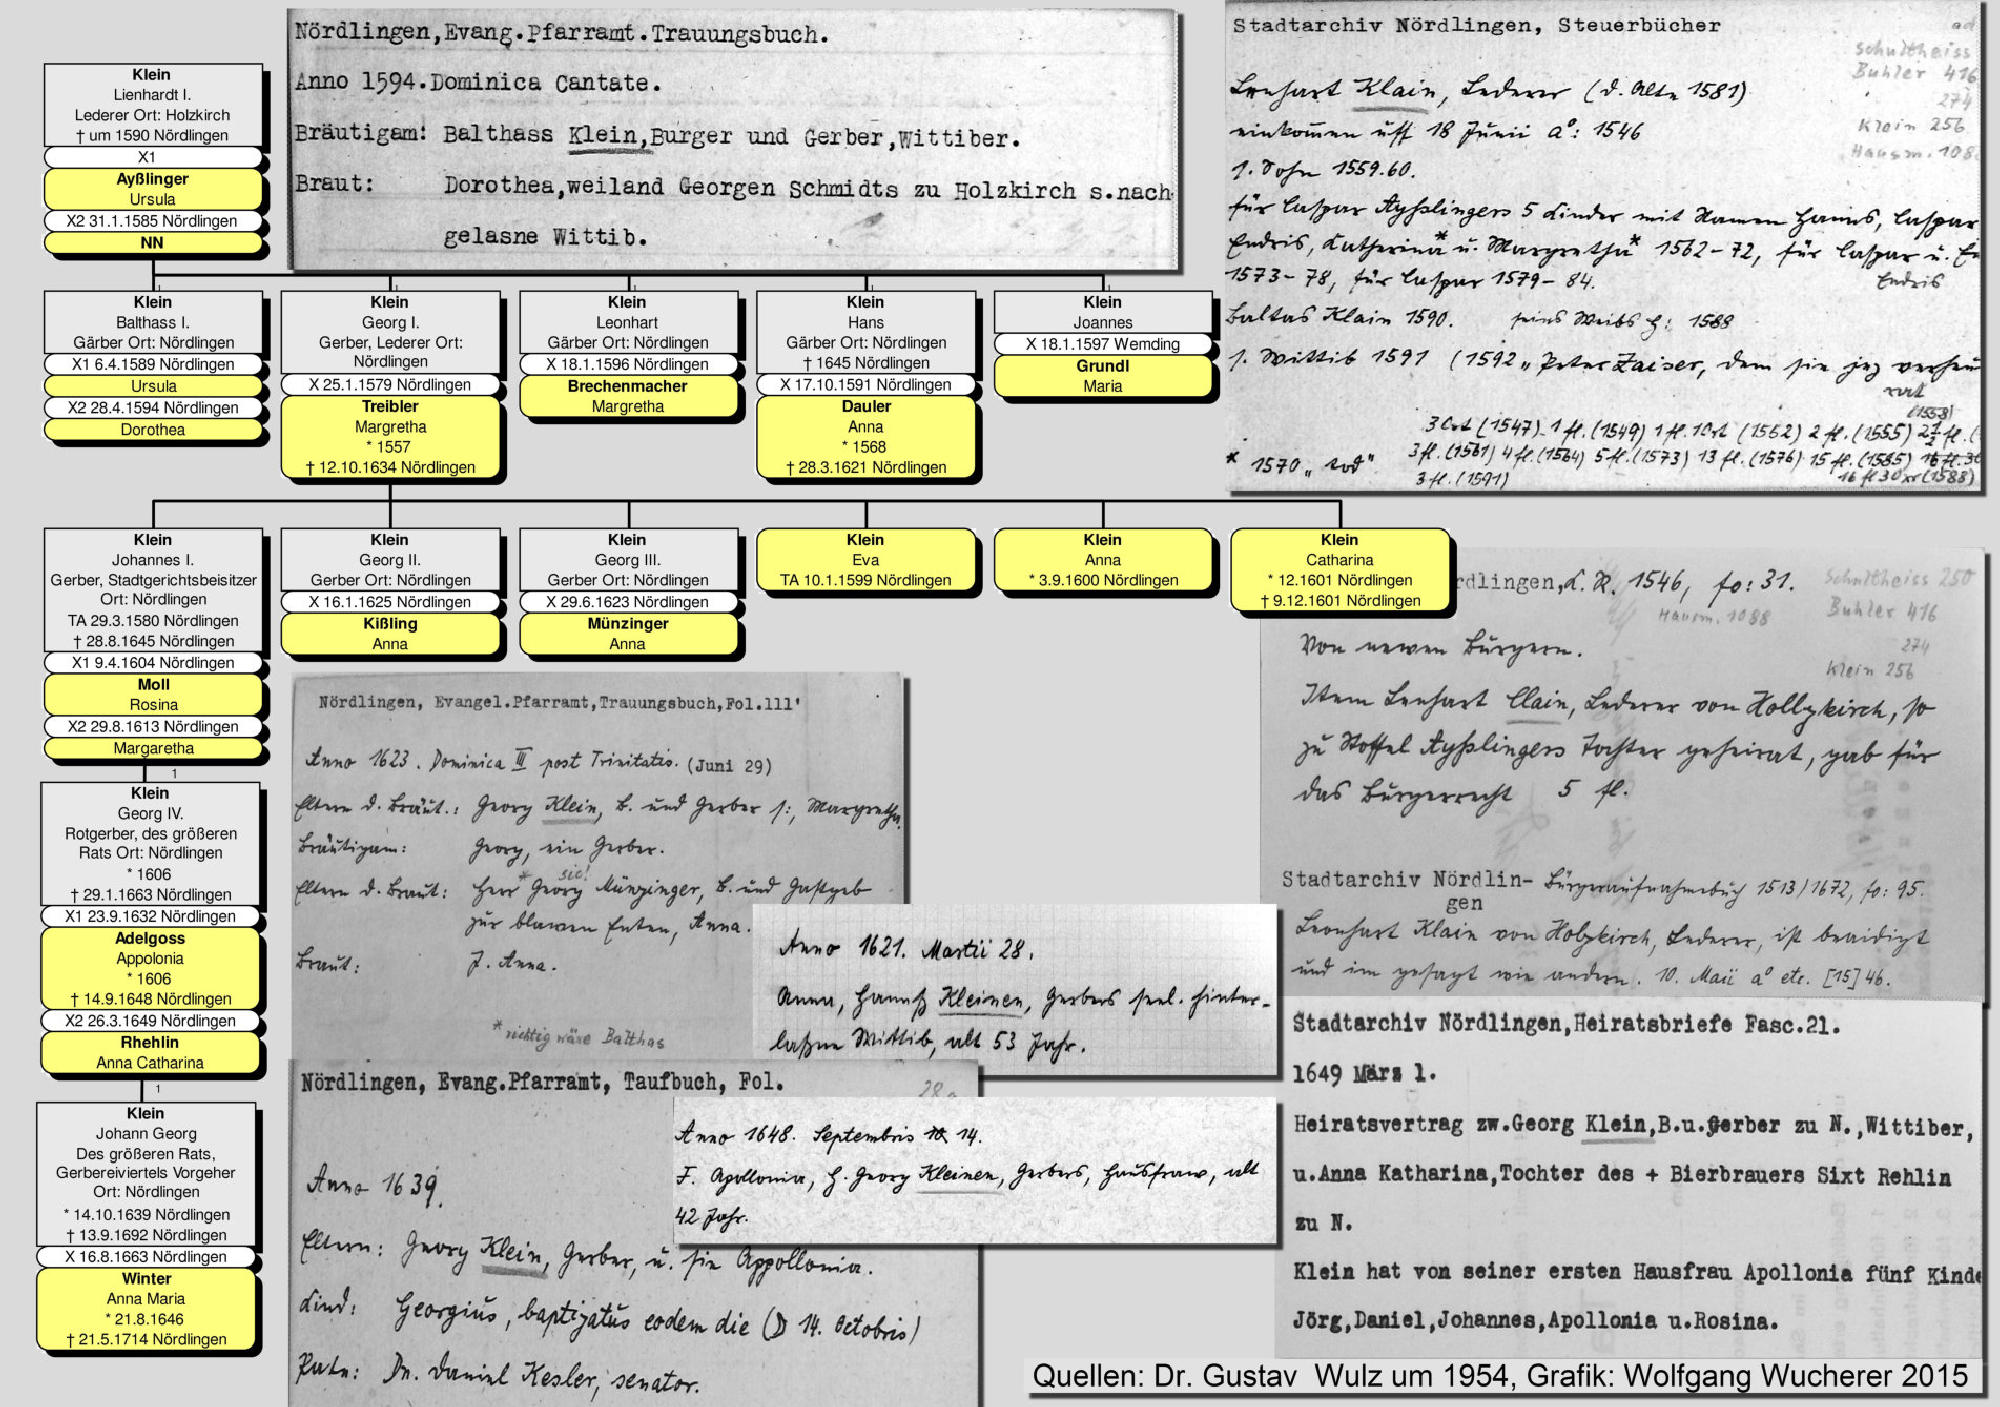 Klein
Lienhardt I.
Lederer Ort: Holzkirch
† um 1590 Nördlingen
X1
Ayßlinger
Ursula
X2 31.1.1585 Nördlingen
NN
Nördlingen,Evang.Pfarramt.Trauungsbuch.
Anno 1594.Dominica Cantate.
Bräutigam: Balthass Klein,Burger und Gerber,Wittiber.
Braut: Dorothea,weiland Georgen Schmidts zu Holzkirch s.nach
gelasne Wittib.
Stadtarchiv Nördlingen, Steuerbücher
ad
Schultheiss
Buhler 416
274
Klein 256
Hausm. 108
Lenhart Klain, Lederer (d. Alte 1581)
einkomen uff 18 Junii a°: 1546
1. Sohn 1559.60.
für Caspar Ayßlingers 5 Kinder mit Namen Hanns, Caspar
Endris, Katherina* u. Margretha* 1562-72, für Caspar u. En
1573-78, für Caspar 1579-84. Endris
Baltas Klain 1590. seins Weibs H: 1588
s. Wittib 1591 (1592 „Peter Zaiser, dem sie jez verheu
rat
(1558)
3 Ort (1547) 1 fl. (1549) 1 fl. 1 Ort (1552) 2 fl. (1555) 2½ fl. (
3 fl. (1561) 4 fl. (1564) 5 fl. (1573) 13 fl. (1576) 15 fl. (1585) 16 fl. 30
* 1570 „tod" 3 fl. (1591) 16 fl 30 xr (1588)
Klein
Balthass I.
Gärber Ort: Nördlingen
X1 6.4.1589 Nördlingen
Ursula
X2 28.4.1594 Nördlingen
Dorothea
Klein
Georg I.
Gerber, Lederer Ort:
Nördlingen
X 25.1.1579 Nördlingen
Treibler
Margretha
* 1557
† 12.10.1634 Nördlingen
Klein
Leonhart
Gärber Ort: Nördlingen
X 18.1.1596 Nördlingen
Brechenmacher
Margretha
Klein
Hans
Gärber Ort: Nördlingen
† 1645 Nördlingen
X 17.10.1591 Nördlingen
Dauler
Anna
* 1568
† 28.3.1621 Nördlingen
Klein
Joannes
X 18.1.1597 Wemding
Grundl
Maria
Klein
Johannes I.
Gerber, Stadtgerichtsbeisitzer
Ort: Nördlingen
TA 29.3.1580 Nördlingen
† 28.8.1645 Nördlingen
X1 9.4.1604 Nördlingen
Moll
Rosina
X2 29.8.1613 Nördlingen
Margaretha
1
Klein
Georg II.
Gerber Ort: Nördlingen
X 16.1.1625 Nördlingen
Kißling
Anna
Klein
Georg III.
Gerber Ort: Nördlingen
X 29.6.1623 Nördlingen
Münzinger
Anna
Klein
Eva
TA 10.1.1599 Nördlingen
Klein
Anna
* 3.9.1600 Nördlingen
Klein
Catharina
* 12.1601 Nördlingen
† 9.12.1601 Nördlingen
rdlingen, K. R. 1546, fo: 31.
Schultheiss 250
Hausm. 1088
Buhler 416
274
Klein 256
Von newen Bürgern.
Item Lenhart Clain, Lederer von Holtzkirch, so
zu Stoffel Ayßlingers Tochter geheirat, gab für
das Bürgerrecht 5 fl.
Stadtarchiv Nördlin- Bürgeraufnahmebuch 1513/1672, fo: 95.
gen
Leonhart Klain von Holtzkirch, Lederer, ist beaidigt
und im gesagt wie andern. 10. Maii a° etc. [15]46.
Klein
Georg IV.
Rotgerber, des größeren
Rats Ort: Nördlingen
* 1606
† 29.1.1663 Nördlingen
X1 23.9.1632 Nördlingen
Adelgoss
Appolonia
* 1606
† 14.9.1648 Nördlingen
X2 26.3.1649 Nördlingen
Rhehlin
Anna Catharina
1
Klein
Johann Georg
Des größeren Rats,
Gerbereiviertels Vorgeher
Ort: Nördlingen
* 14.10.1639 Nördlingen
† 13.9.1692 Nördlingen
X 16.8.1663 Nördlingen
Winter
Anna Maria
* 21.8.1646
† 21.5.1714 Nördlingen
Nördlingen, Evangel.Pfarramt,Trauungsbuch,Fol.111'
Anno 1623. Dominica III post Trinitatis. (Juni 29)
Eltern d. Bräut.: Georg Klein, B. und Gerber s:, Margretha
Bräutigam: Georg, ein Gerber.
sic!
Eltern d. Braut: Herr Georg* Münzinger, B. und Gastgeb
zur blawen Enten, Anna.
Braut: J. Anna.
* richtig wäre Balthas
Anno 1621. Martii 28.
Anna, Hannß Kleinen, Gerbers seel. hinter-
laßne Wittib, alt 53 Jahr.
Nördlingen, Evang.Pfarramt, Taufbuch, Fol.
Anno 1639.
Eltern: Georg Klein, Gerber, u. sie Appollonia.
Kind: Georgius, baptizatus eodem die (D 14. Octobris)
Pate: Dn. Daniel Kesler, senator.
Anno 1648. Septembris 14.
F. Apollonia, H. Georg Kleinen, Gerbers, Hausfraw, alt
42 Jahr.
Stadtarchiv Nördlingen,Heiratsbriefe Fasc.21.
1649 März 1.
Heiratsvertrag zw.Georg Klein,B.u.Gerber zu N.,Wittiber,
u.Anna Katharina,Tochter des + Bierbrauers Sixt Rehlin
zu N.
Klein hat von seiner ersten Hausfrau Apollonia fünf Kinde
Jörg,Daniel,Johannes,Apollonia u.Rosina.
Quellen: Dr. Gustav Wulz um 1954, Grafik: Wolfgang Wucherer 2015